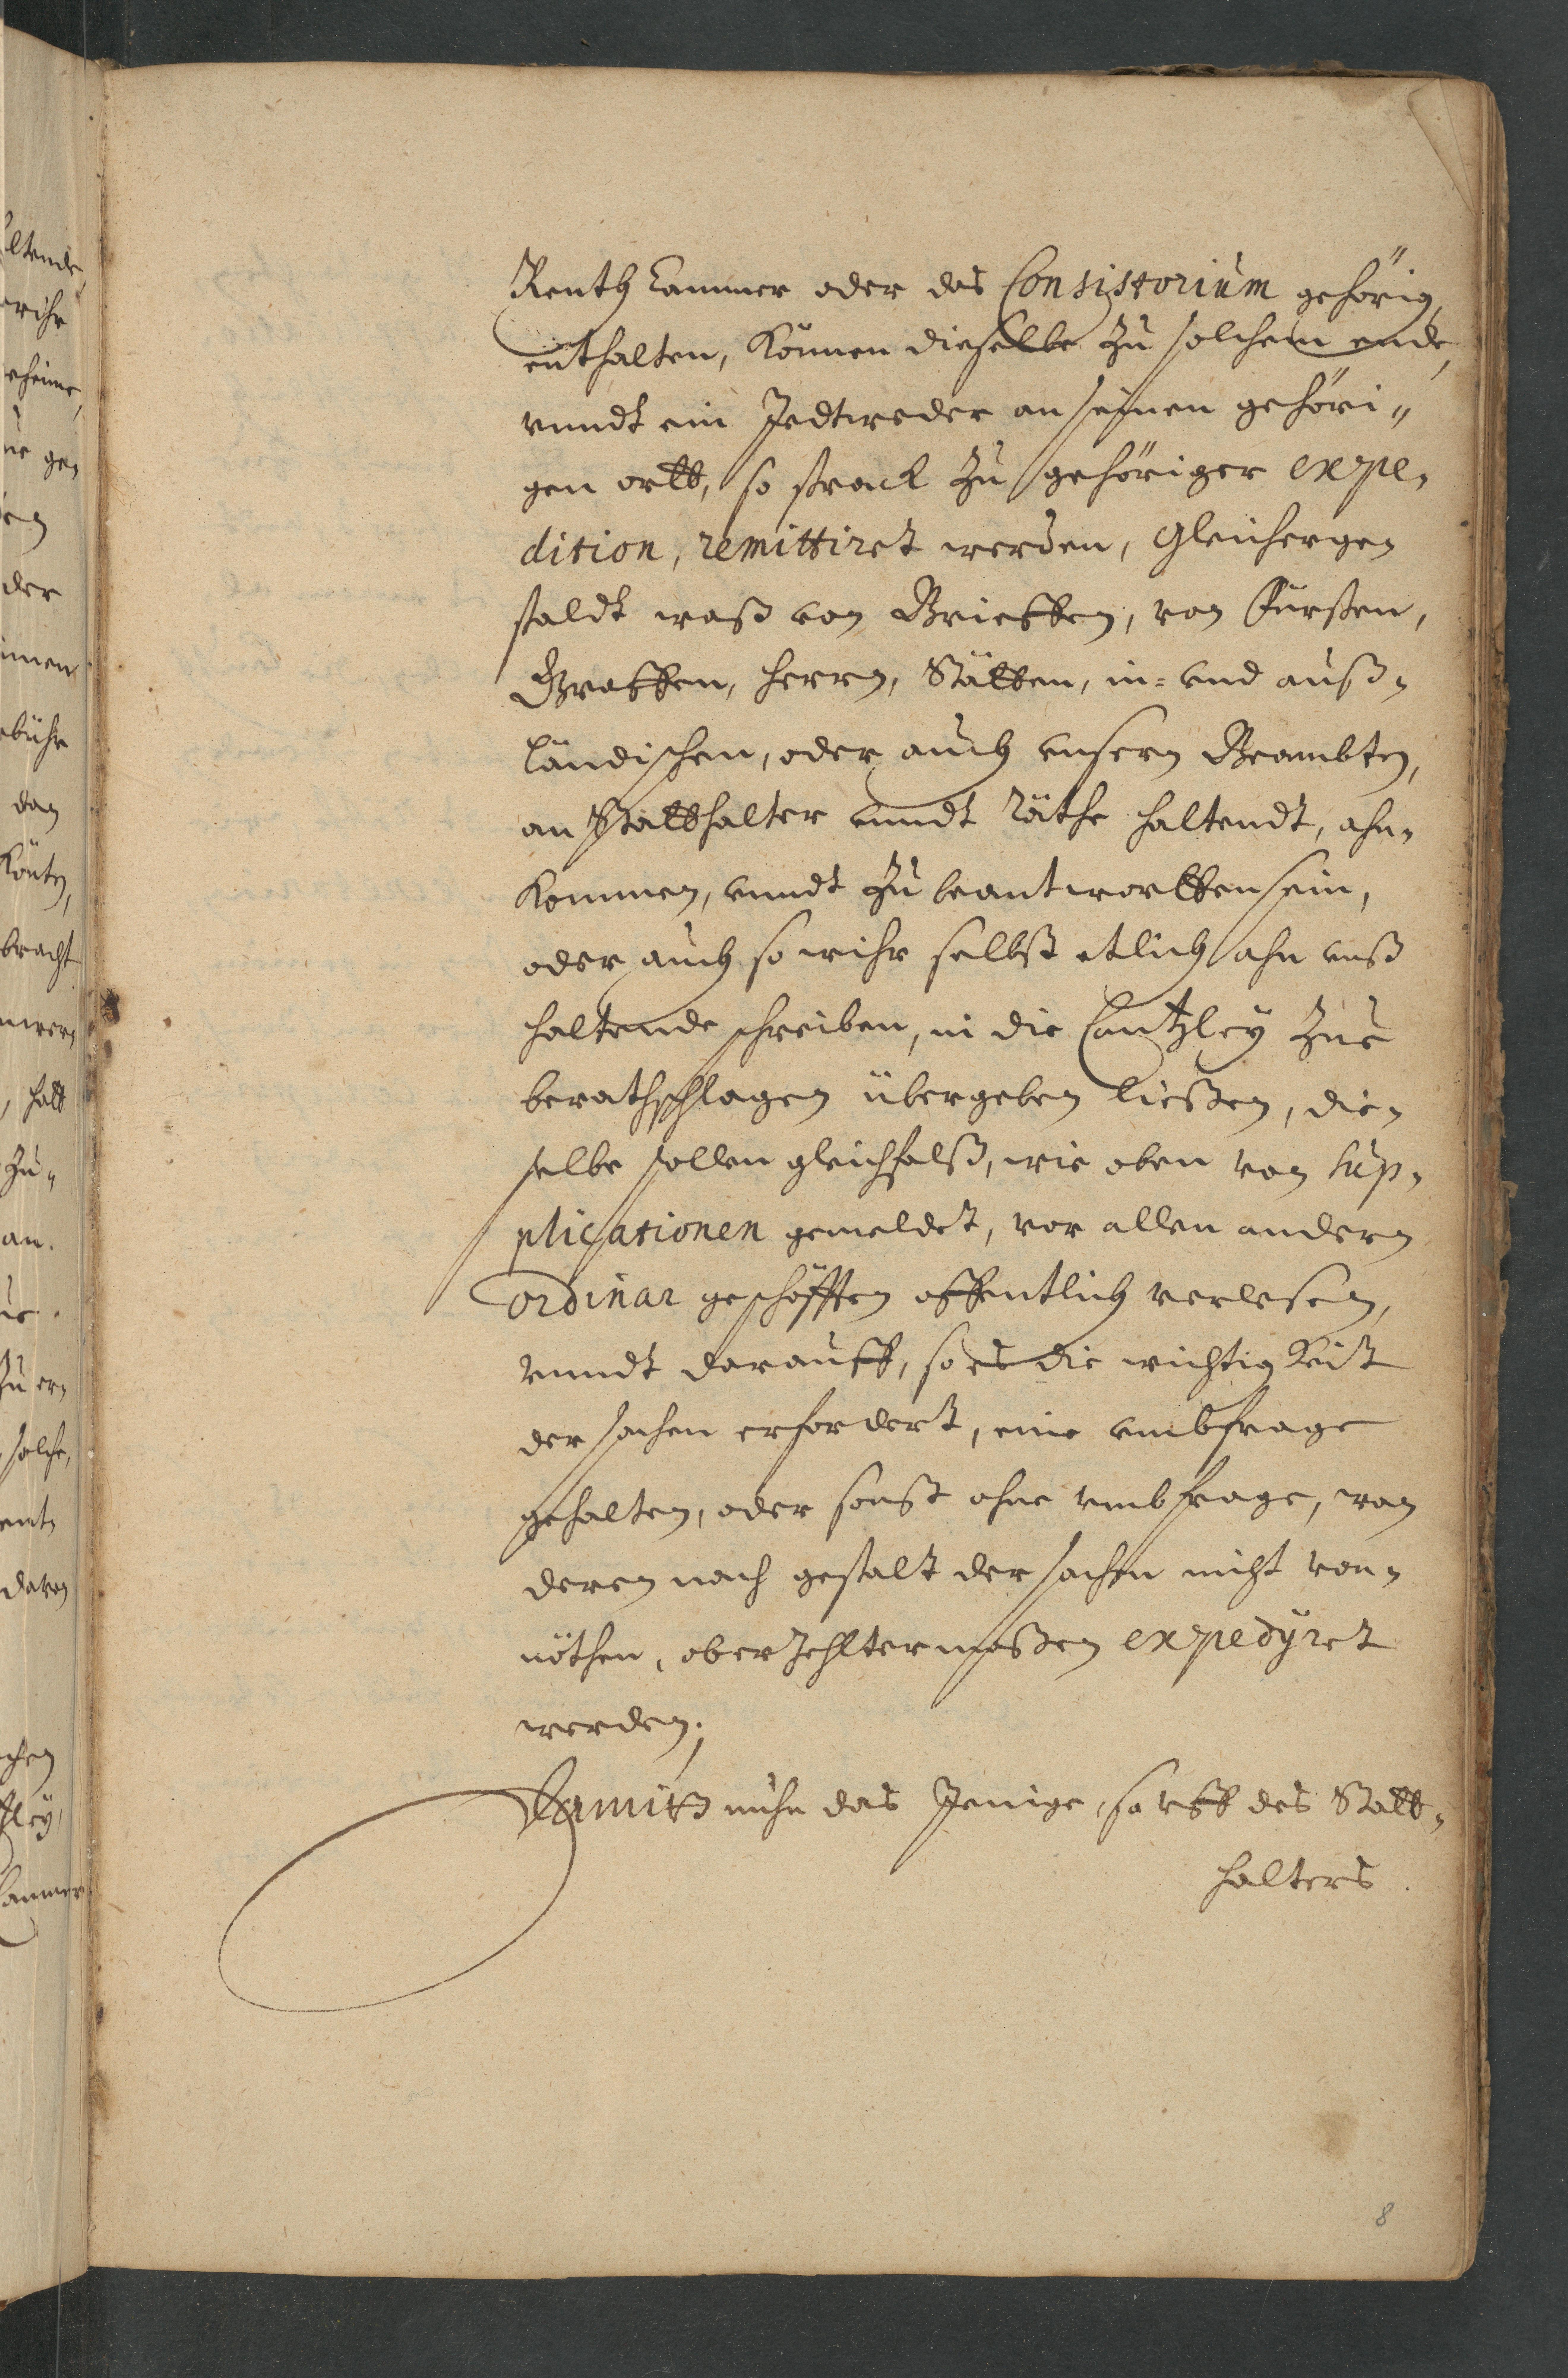 Renth Cammer oder das Consistorium gehörig,
enthalten, können dieselbe zu solchem ende,
vnndt ein Jedtweder an seinen gehöri„
gen ortt, so strack zu gehöriger expe,
dition, remittiret werden, Gleichergen
staldt waß von Brieffen, von Fürsten,
Graffen, Herrn, Stätten, in= vnd auß,
ländischen, oder auch vnsern Beambten,
an Statthalter vnndt Räthe haltendt, ahn,
kommen, vnndt zu beantwortten sein,
oder auch so wihr selbst etlich ahn vnß
haltende schreiben, in die Cantzley zue
berathschlagen übergeben ließen, die,
selbe sollen gleichfalß, wie oben von sup,
plicationen gemeldet, vor allen andern
ordinar geschäfften offentlich verlesen,
vnndt darauff, so es die wichtigkeit
der sachen erfordert, eine vmbfrage
gehalten, oder sonst ohne vmbfrage, wan
deren nach gestalt der sachen nicht von,
nöthen, oberzehltermaßen expedyret
werden.
Damitt nuhn das Jenige, so vff des Statt,
halters
8